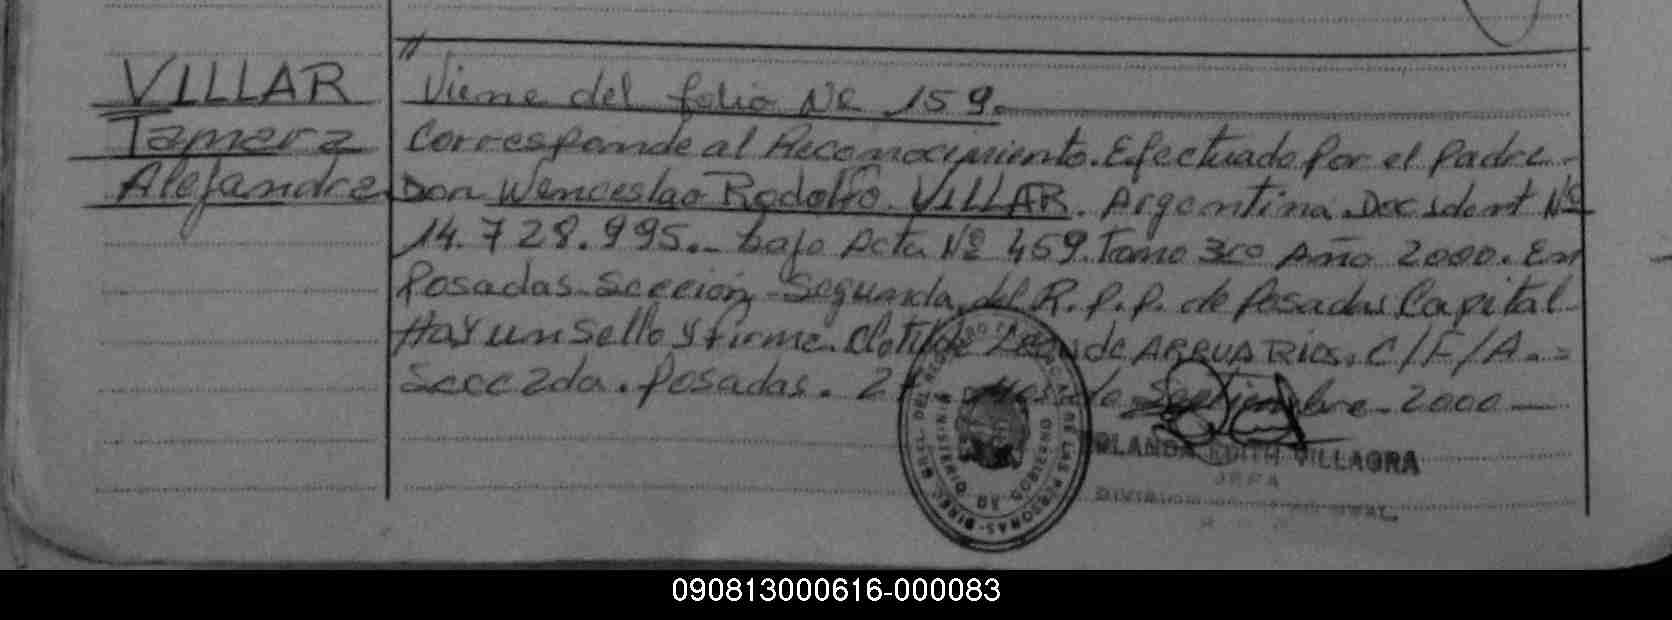 VILLAR
Tamara
Alejandra
Viene del folio Nº 159.
Corresponde al Reconocimiento. Efectuado Por el Padre.
Don Wenceslao Rodolfo VILLAR. Argentina. Doc ident Nº
14.728.995.- bajo Acta Nº 459. Tomo 3ro Año 2000. En
Posadas. Sección Segunda, del R.P.P. de Posadas Capital
Hay un Sello y firma. Clotilde de ARRUA RIOS. C/F/A.=
Secc 2da. Posadas. Septiembre - 2000
EDITH VILLAGRA
JEFA
DIVISION
DE LAS PERSONAS
090813000616-000083